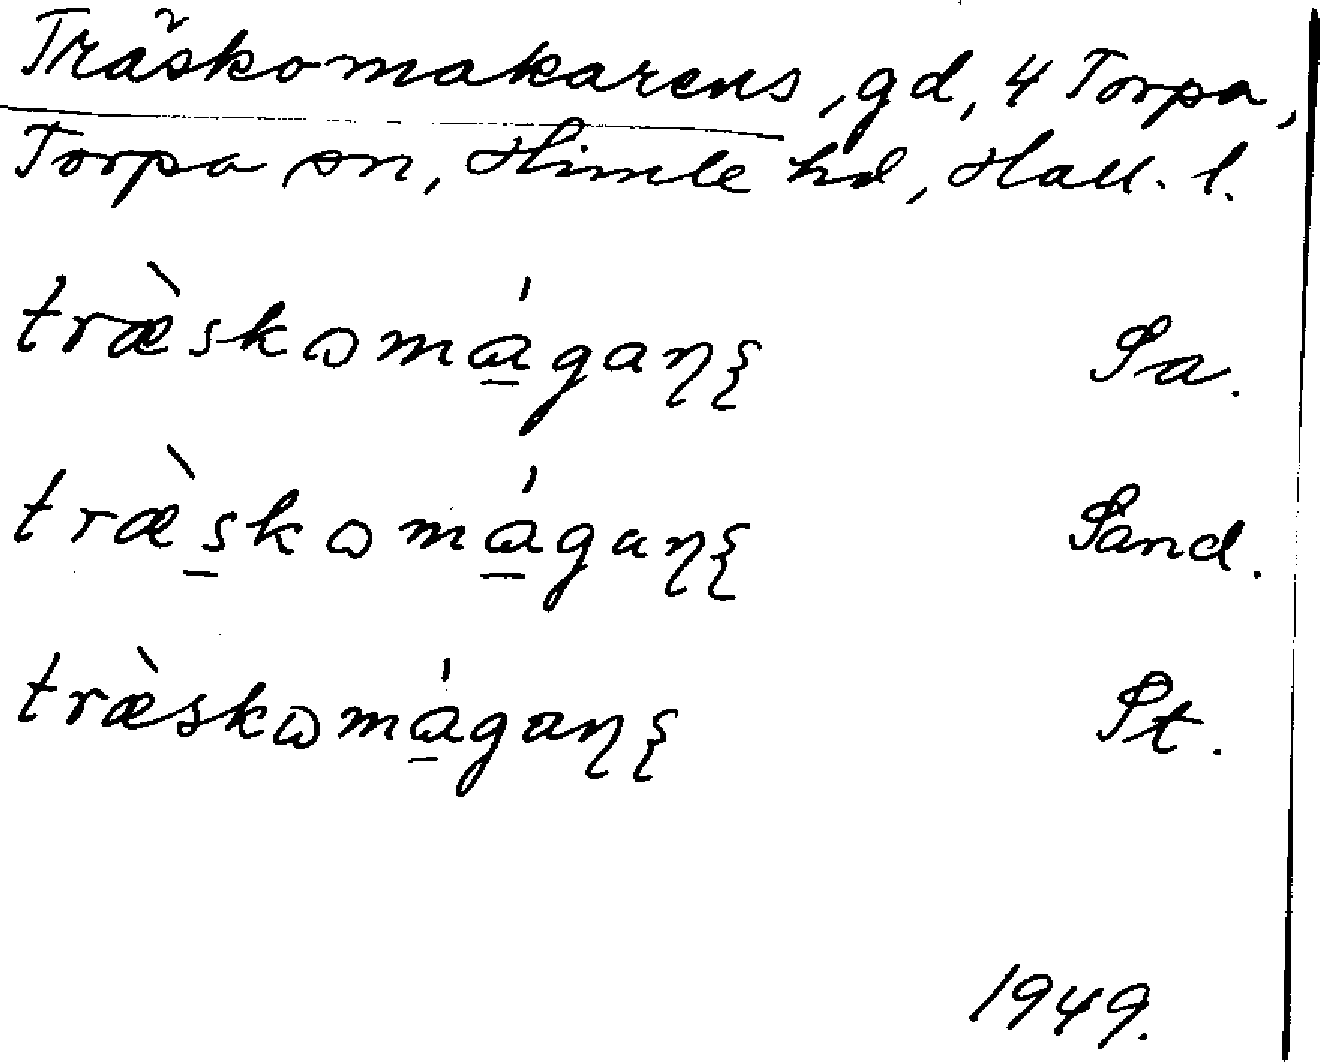 Träskomakarens, gd, 4 Torpa,
Torpa sn, Himle hd, Hall. l.
træ̀skɷmɷ̲́gaŋξ Sa.
træ̀s̲kɷmɷ̲́gaŋξ Sand.
træ̀skɷmɷ̲́gaŋξ St.
1949.